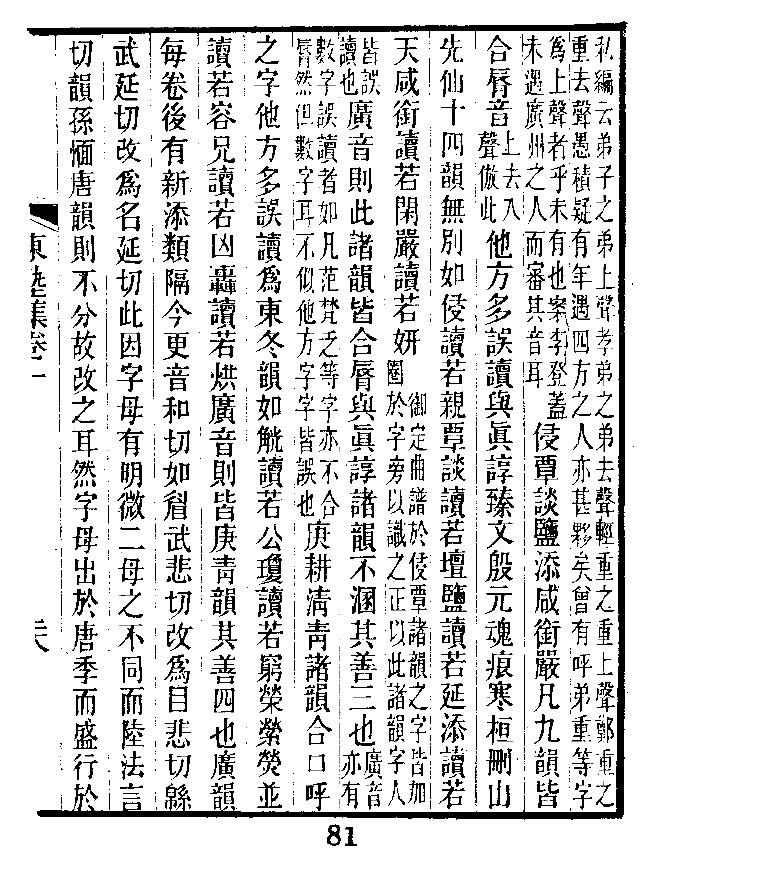 私編云弟子之弟上聲孝弟之弟去聲輕重之重上聲鄭重之
重去聲愚積疑有年遇四方之人亦甚夥矣曾有呼弟重等字
爲上聲者乎未有也案李登蓋
未遇廣州之人而審其音耳
侵覃談鹽添咸銜嚴凡九韻皆
合脣音
上去入
聲倣此
他方多誤讀與眞諄臻文殷元魂痕寒桓刪山
先仙十四韻無別如侵讀若親覃談讀若壇鹽讀若延添讀若
天咸銜讀若閑嚴讀若妍
御定曲譜於侵覃諸韻之字皆加
圈於字旁以識之正以此諸韻字人
皆誤
讀也
廣音則此諸韻皆合脣與眞諄諸韻不溷其善三也
廣音
亦有
數字誤讀者如凡范梵乏等字亦不合
脣然但數字耳不似他方字字皆誤也
庚耕清青諸韻合口呼
之字他方多誤讀爲東冬韻如觥讀若公瓊讀若窮榮縈熒並
讀若容兄讀若凶轟讀若烘廣音則皆庚青韻其善四也廣韻
每卷後有新添類隔今更音和切如眉武悲切改爲目悲切緜
武延切改爲名延切此因字母有明微二母之不同而陸法言
切韻孫愐唐韻則不分故改之耳然字母出於唐季而盛行於
東塾集卷一
81